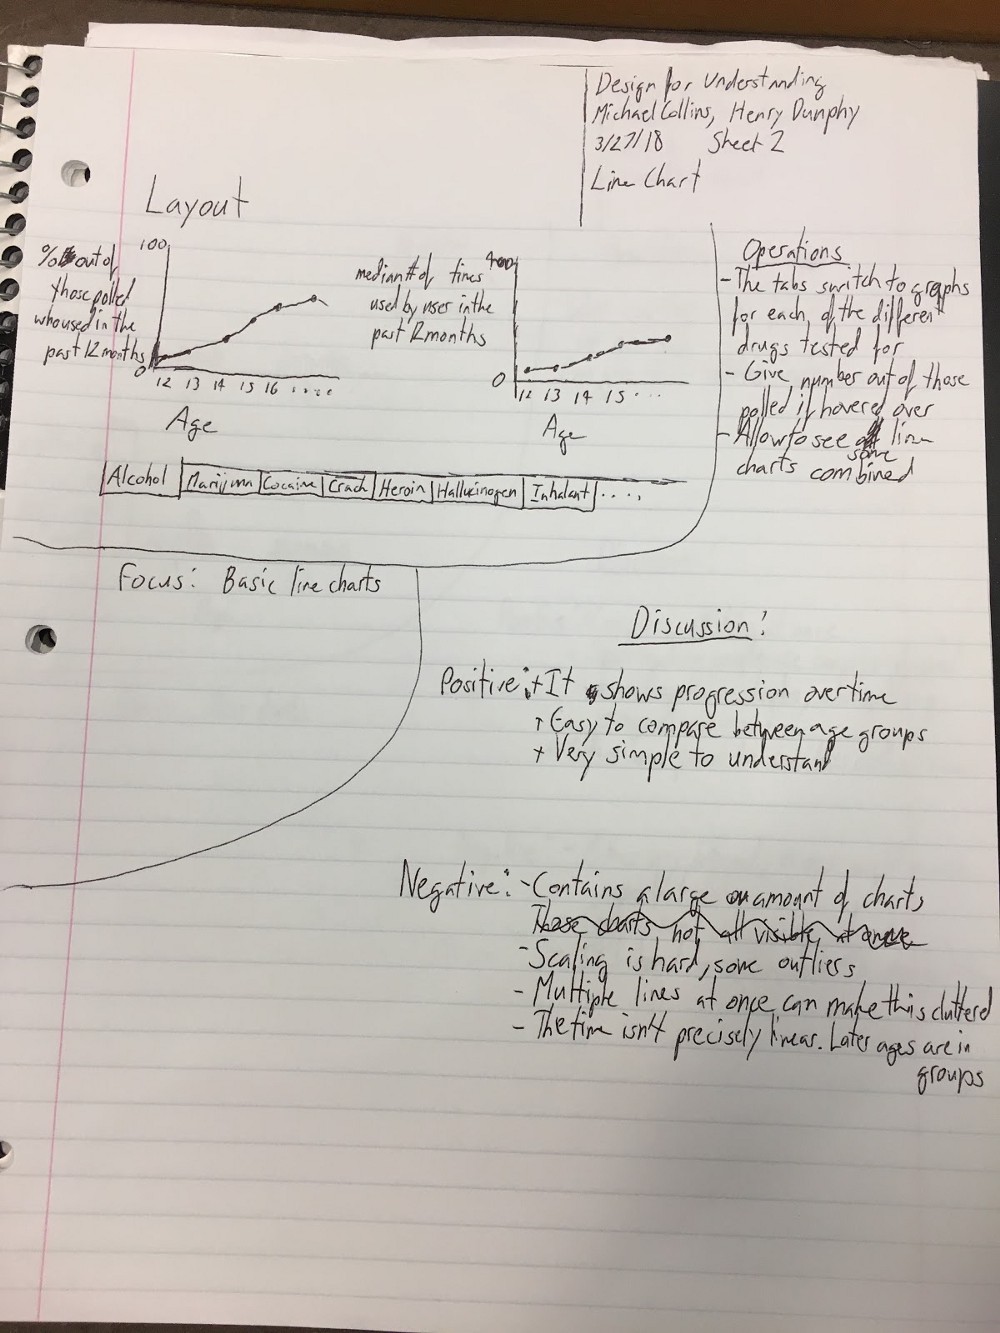 Design for Understanding
Michael Collins, Henry Dunphy
3/27/18 Sheet 2
Line Chart
Layout
100
% out of
those polled
who used in the
past 12 months
0
12 13 14 15 16 ....
Age
median # of times
used by user in the
past 12 months
0
12 13 14 15 ...
Age
Alcohol Marijuana Cocaine Crack Heroin Hallucinogen Inhalant ....
Operations
- The tabs switch to graphs
for each of the different
drugs tested for
- Give number out of those
polled if hovered over
- Allow to see some line
charts combined
Focus: Basic line charts
Discussion:
Positive: + It shows progression over time
+ Easy to compare between age groups
+ Very simple to understand
Negative: - Contains a large amount of charts
These charts not all visible at once
- Scaling is hard, some outliers
- Multiple lines at once can make this cluttered
- The time isn't precisely linear. Later ages are in
groups